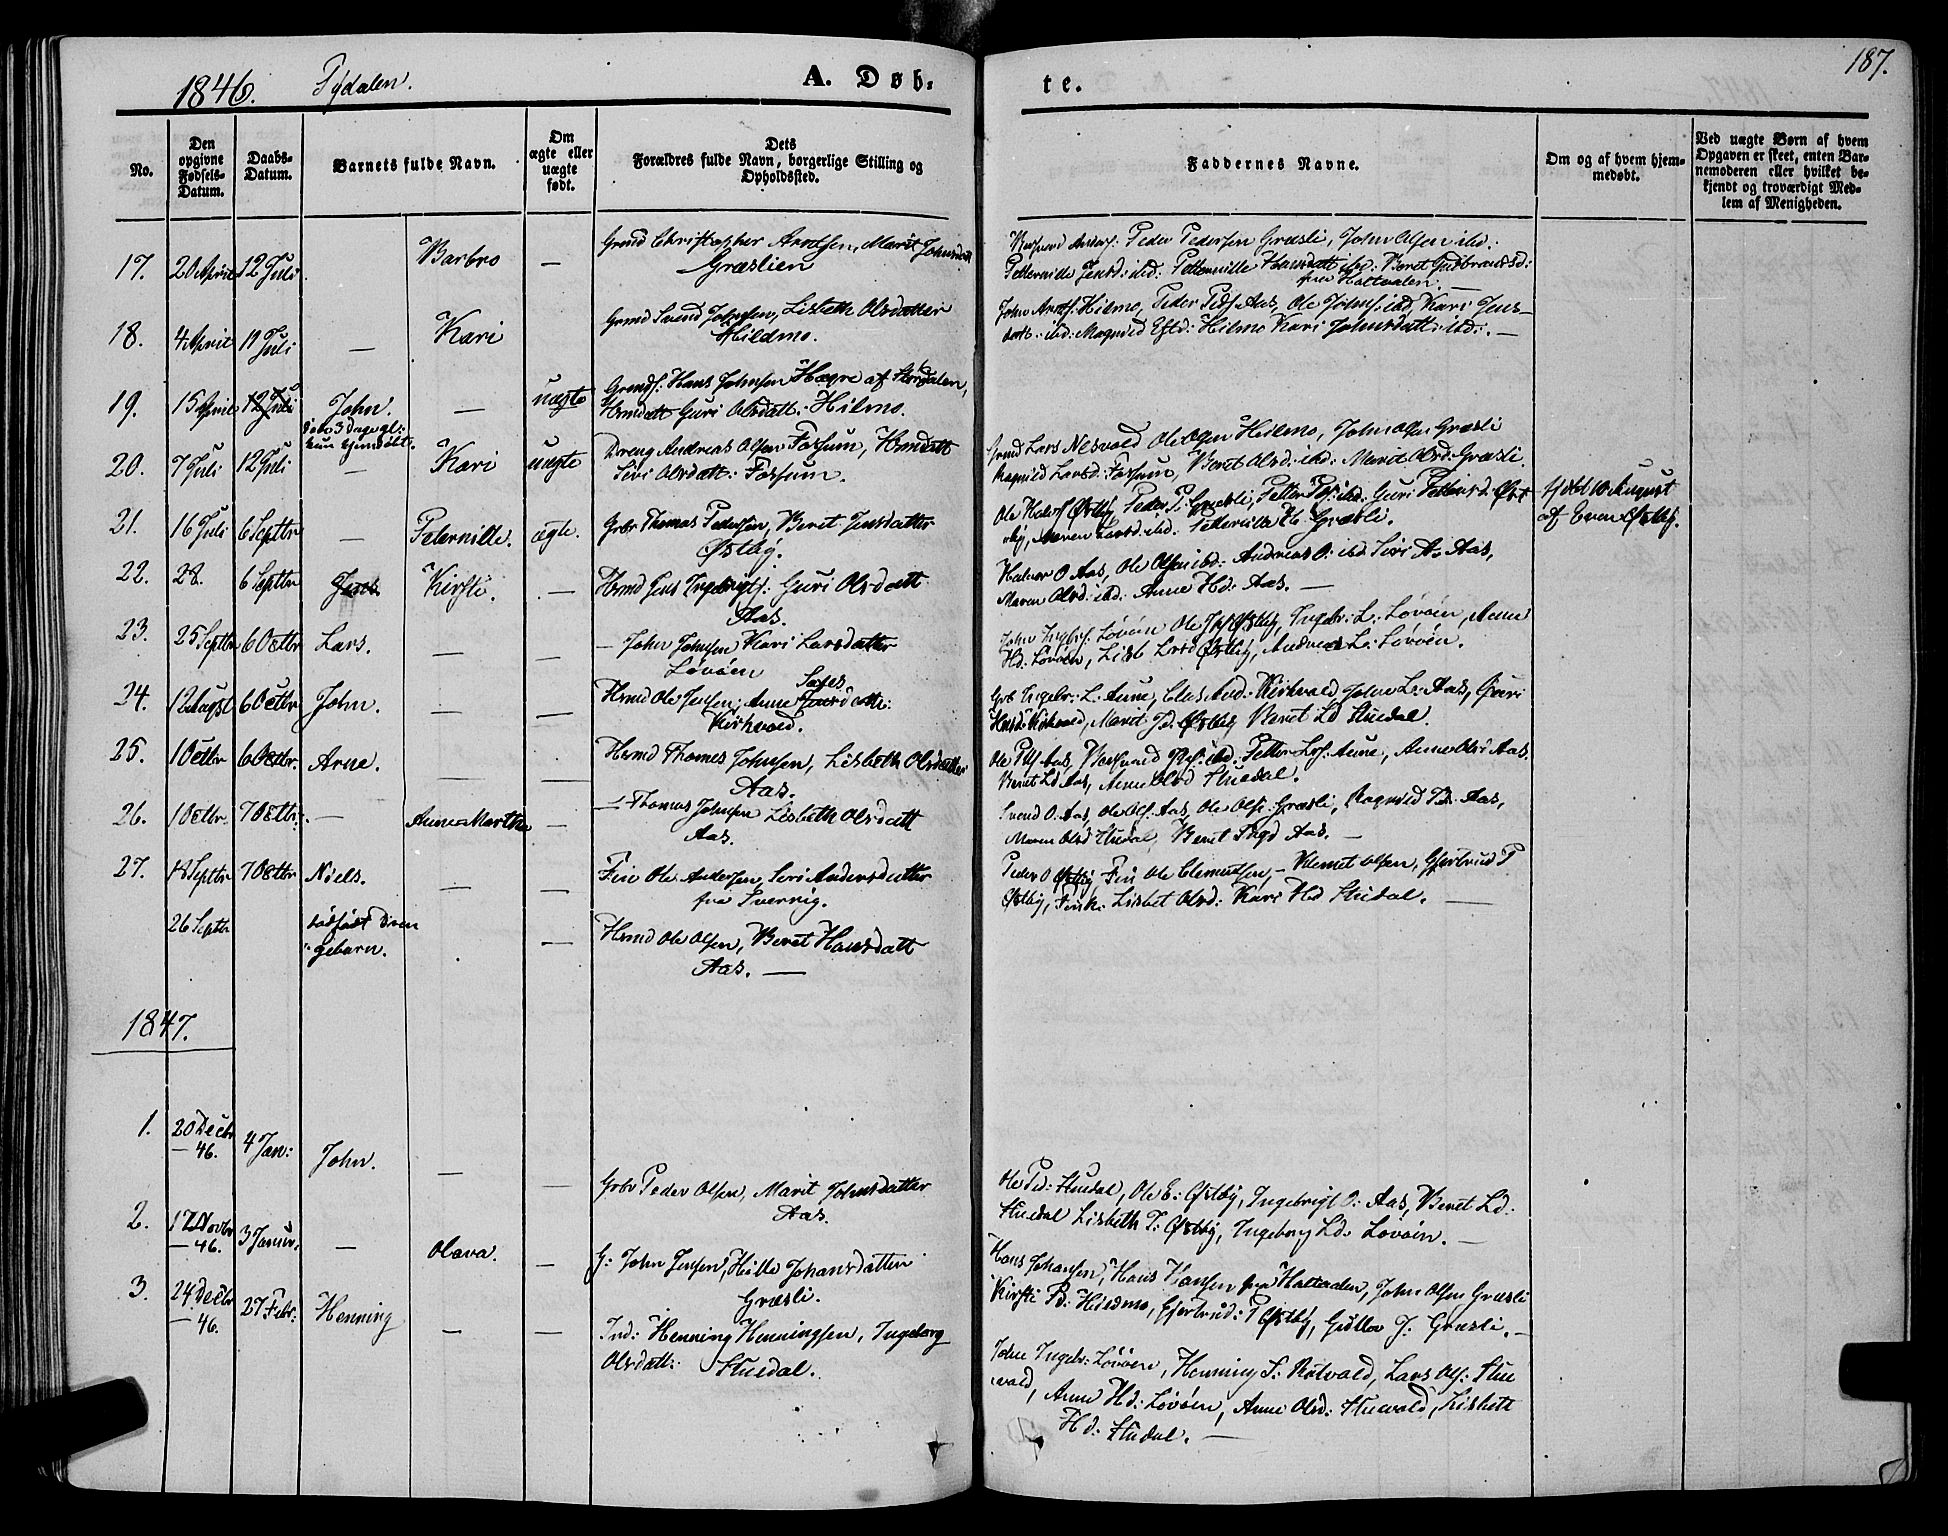 187.
1846. Tydalen. A. Døb-
te.
No.
Den opgivne Fødsels-Datum.
Daabs-Datum.
Barnets fulde Navn.
Om ægte eller uægte født.
Dets Forældres fulde Navn, borgerlige Stilling og Opholdssted.
Faddernes Navne.
Om og af hvem hjemmedøbt.
Ved uægte Børn af hvem Opgaven er skeet, enten Barnemoderen eller hvilket bekjendt og troværdigt Medlem af Menigheden.
17. 20 April 12 Juli Barbro — Grmd Christopher Arntsen, Marit Johnsdatt
Græslien
Peder Pedersen Græsli, John Olsen ibd:
Petternille Jensd: ibd: Petternille Hansdatt ibd: Beret Gudbrandsd:
fra Holtaalen. —
18. 4 April 11 Juli — Kari Grmd Svend Johnsen, Lisbeth Olsdatter
Hildmo.
John Arnts: Hilmo, Peder Peds: Aas, Ole Johns: ibd, Kari Jens-
datt: ibd: Magnild Estd: Hilmo Kari Johnsdatt: ibd: —
19. 15 April 12 Juli John. — uægte Grmds: Hans Johnsen Hægre af Størdalen,
Hrmdatt Guri Olsdatt: Hilmo.
døe 3 Dage gl:
kun hjemdøbt.
20. 7 Juli 12 Juli — Kari uægte Dreng Andreas Olsen Fossum, Hrmdatt
Siri Olsdatt: Fossum.
Grmd Lars Nesvold Ole Olsen Hilmo, John Olsen Græsli
Ragnild Larsd: Fossum, Beret Olsd: ibd: Marit Olsd: Græsli.
21. 16 Juli 6 Septbr — Peternille. ægte. Grbr Thomas Pedersen, Beret Jensdatter
Østby.
Ole Halvs: Østby, Peder P: Græsli, Petter Ps: ibd: Guri Petters d: Øst
by, Maren Larsd: ibd: Petternille H: Græsli.
hdbt 10 August
af Even Østby.
22. 28. 6 Septbr Jens Kirsti. — Hrmd Jens Ingebrigts: Guri Olsdatt
Aas.
Halvor O Aas, Ole Olsen ibd: Andreas O: ibd. Siri A. Aas,
Maren Olsd: ibd: Anne Hd: Aas. —
23. 25 Septbr 6 Octbr Lars. — — — John Johnsen Kari Larsdatter
Løvøen
John Ingbrs: Løvøen Ole Js: Østby, Ingebr: L: Løvøen, Anne
Hd: Løvøen, Lisb Larsd Østby, Andreas L: Løvøen.
24. 12 August 6 Octbr John. — — Hrmd Ole Jensen, Anne Larsdatt:
Kirkvold.
Grb Ingebr: L: Aune, Kirkvold John L: Aas, Guri
Kirkvold, Marit Jd. Østby Beret Ld Stuedal.
25. 1 Octbr 6 Octbr. Arne. — — Hrmd Thomas Johnsen, Lisbeth Olsdatter
Aas.
Petter Aune, Anne Olsd Aas.
Beret Ld Aas, Anne Olsd Stuedal.
26. 1 Octbr. 7 Octbr. — Anne Martha — — Thomas Johnsen Lisbeth Olsdatt
Aas.
Svend O. Aas, Ole Ols. Aas, Ole Ols: Græsli, Ragnild Pd. Aas,
Maren Olsd Stuedal, Beret Ingd Aas. —
27. 18 Septbr 7 Octbr Niels. — — Fin Ole Andersen, Siri Andersdatter
fra Sverrig.
Peder O Østby, Fin Ole Clemetsen, — Klemet Olsen, Gjertrud P
Østby, Fink: Lisbet Olsd: Kari Hd Stuedal. —
26 Septbr dødfødt Dren
gebarn. — — Hrmd Ole Olsen, Beret Hansdatt
Aas. —
1847.
1. 20 Decbr
— 46. 4 Jan: John. — — Grbr Peder Olsen, Marit Johnsdatter
Aas.
Ole Pd: Stuedal, Ole E: Østby, Ingebrigt O: Aas, Beret Ld:
Stuedal Lisbeth T: Østby, Ingeborg Ld. Løvøen. —
2. 17 Novbr
— 46. 3 Januar. — Olava. — G: John Jensen, Hille Johansdatter
Græsli.
Hans Johansen, Hans Hansen fra Holtaalen, John Olsen Græsli
Kirsti Pd: Hildmo, Gjertrud: P Østby, Gulla J: Græsli. —
3. 24 Decbr
— 46. 27 Febr: Henning — — Ind: Henning Henningsen, Ingeborg
Olsdatt: Stuedal.
John Ingebr: Løvøen, Henning S: Rotvold, Lars Ols: Stue
vold, Anne Hd: Løvøen, Anne Olsd: Stuevold, Lisbett
Hd: Stuedal. —